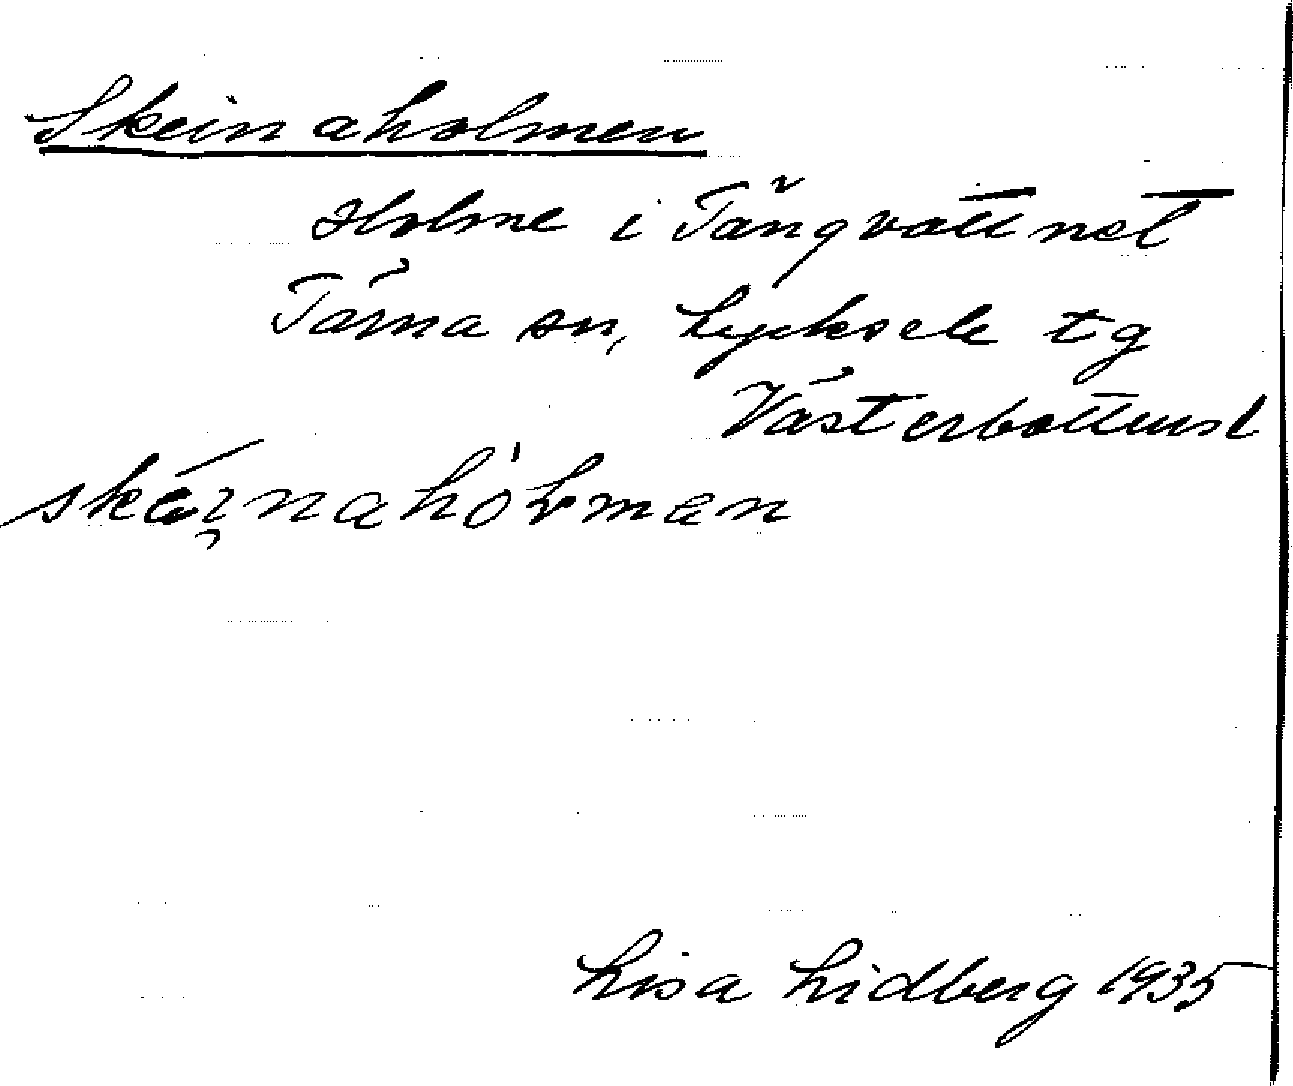 Skeinaholmen
Holme i Tängvattnet
Tärna sn, Lycksele tg
Västerbottensl
Lisa Lidberg 1935